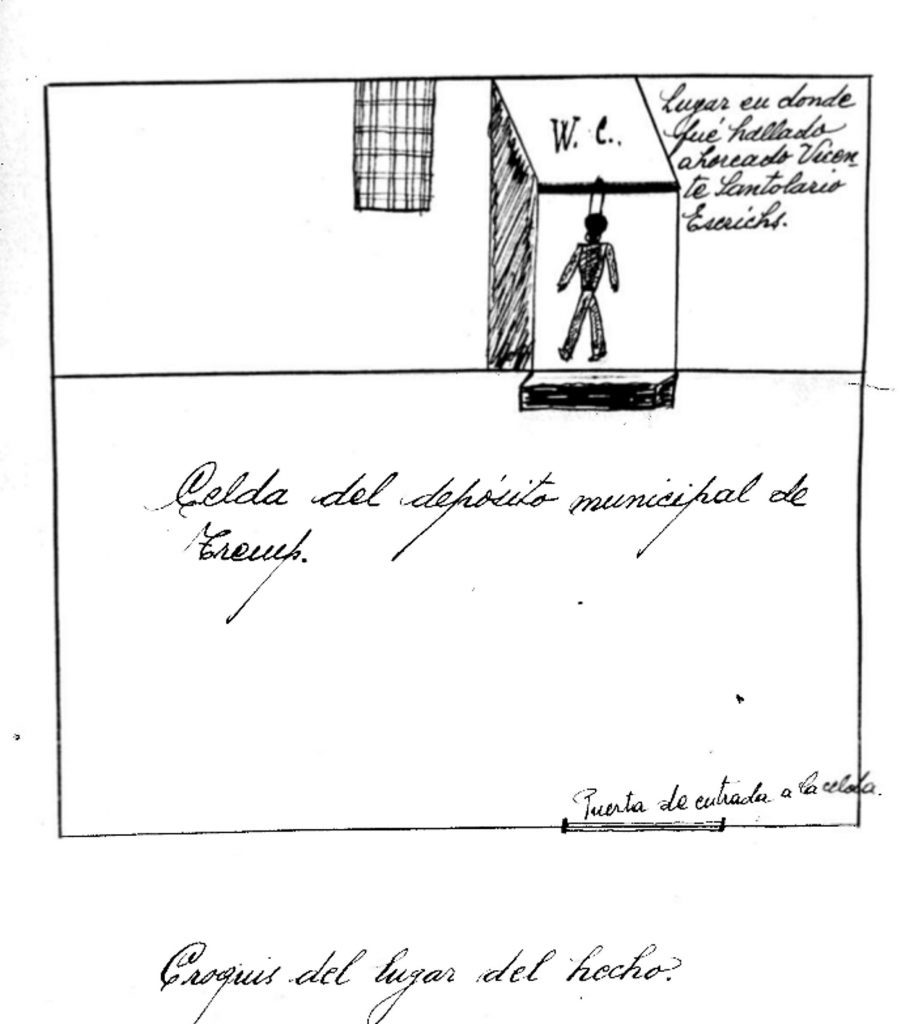 W. C.
Lugar en donde
fué hallado
ahorcado Vicen-
te Santolario
Escrichs.
Celda del depósito municipal de
Tremp.
Puerta de entrada a la celda.
Croquis del lugar del hecho.